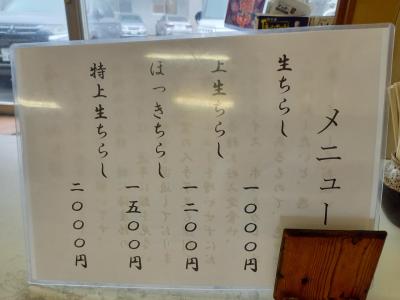 メニュー
生ちらし 一〇〇〇円
上生ちらし 一二〇〇円
ほっきちらし 一五〇〇円
特上生ちらし 二〇〇〇円